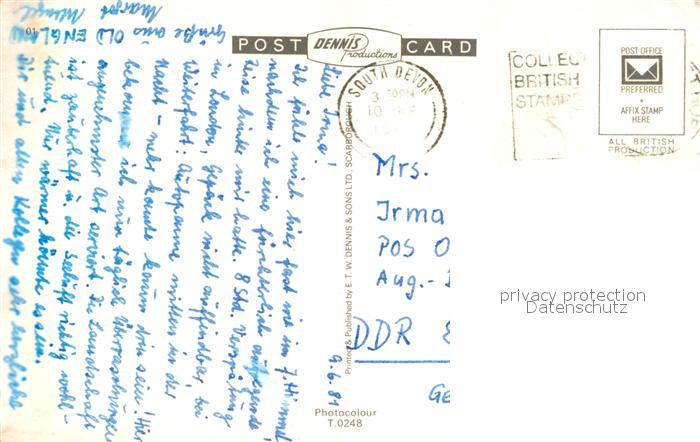 POST DENNIS Productions CARD
SOUTH DEVON
COLLEC
BRITISH
STAMPS
POST OFFICE
PREFERRED
AFFIX STAMP
HERE
ALL BRITISH
PRODUCTION
9.6.81
Liebe Irma!
Ich fühle mich hier fast wie im 7. Himmel
nachdem ich eine fürchterlich aufregende
Reise hinter mir hatte. 8 Std. Verspätung
in London, Gepäck nicht auffindbar bei
Weiterfahrt. Autopanne mitten in der
Nacht - mehr konnte kaum drin sein! Hier
bekomme ich nun täglich Überraschungen
angenehmster Art serviert. Die Landschaft
ist zauberhaft u. die Seeluft richtig wohl-
tuend. Nur wärmer könnte es sein.
Dir und allen Kollegen sehr herzliche
Grüße aus OLD ENGLAND
Margot
Printed & Published by E. T. W. DENNIS & SONS LTD., SCARBOROUGH
Mrs.
Irma
POS O
Aug.-
DDR
GE
Photocolour
T.0248
privacy protection
Datenschutz